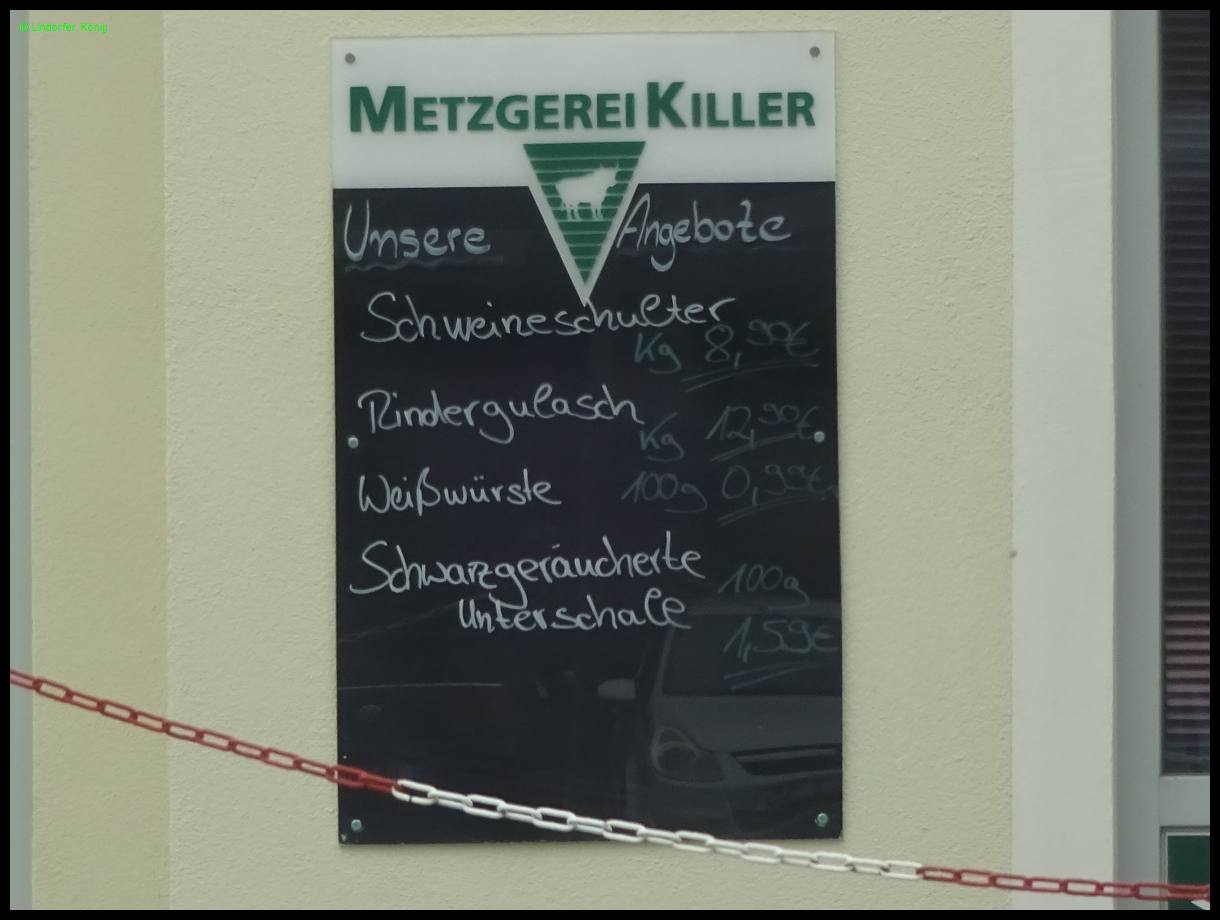 © Lindorfer König
METZGEREI KILLER
Unsere Angebote
Schweineschulter
Kg 8,90€
Rindergulasch
Kg 12,90€
Weißwürste 100g 0,99€
Schwarzgeräucherte
Unterschale
100g
1,59€